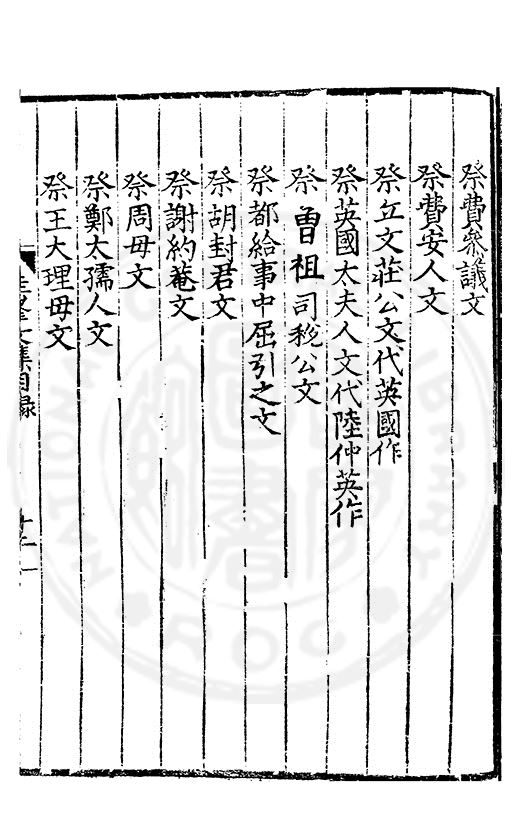 祭費參議文
祭費安人文
祭丘文莊公文代英國作
祭英國太夫人文代陸仲英作
祭曾祖司稅公文
祭都給事中屈引之文
祭胡封君文
祭謝約菴文
祭周母文
祭鄭太孺人文
祭王大理母文
文集目錄